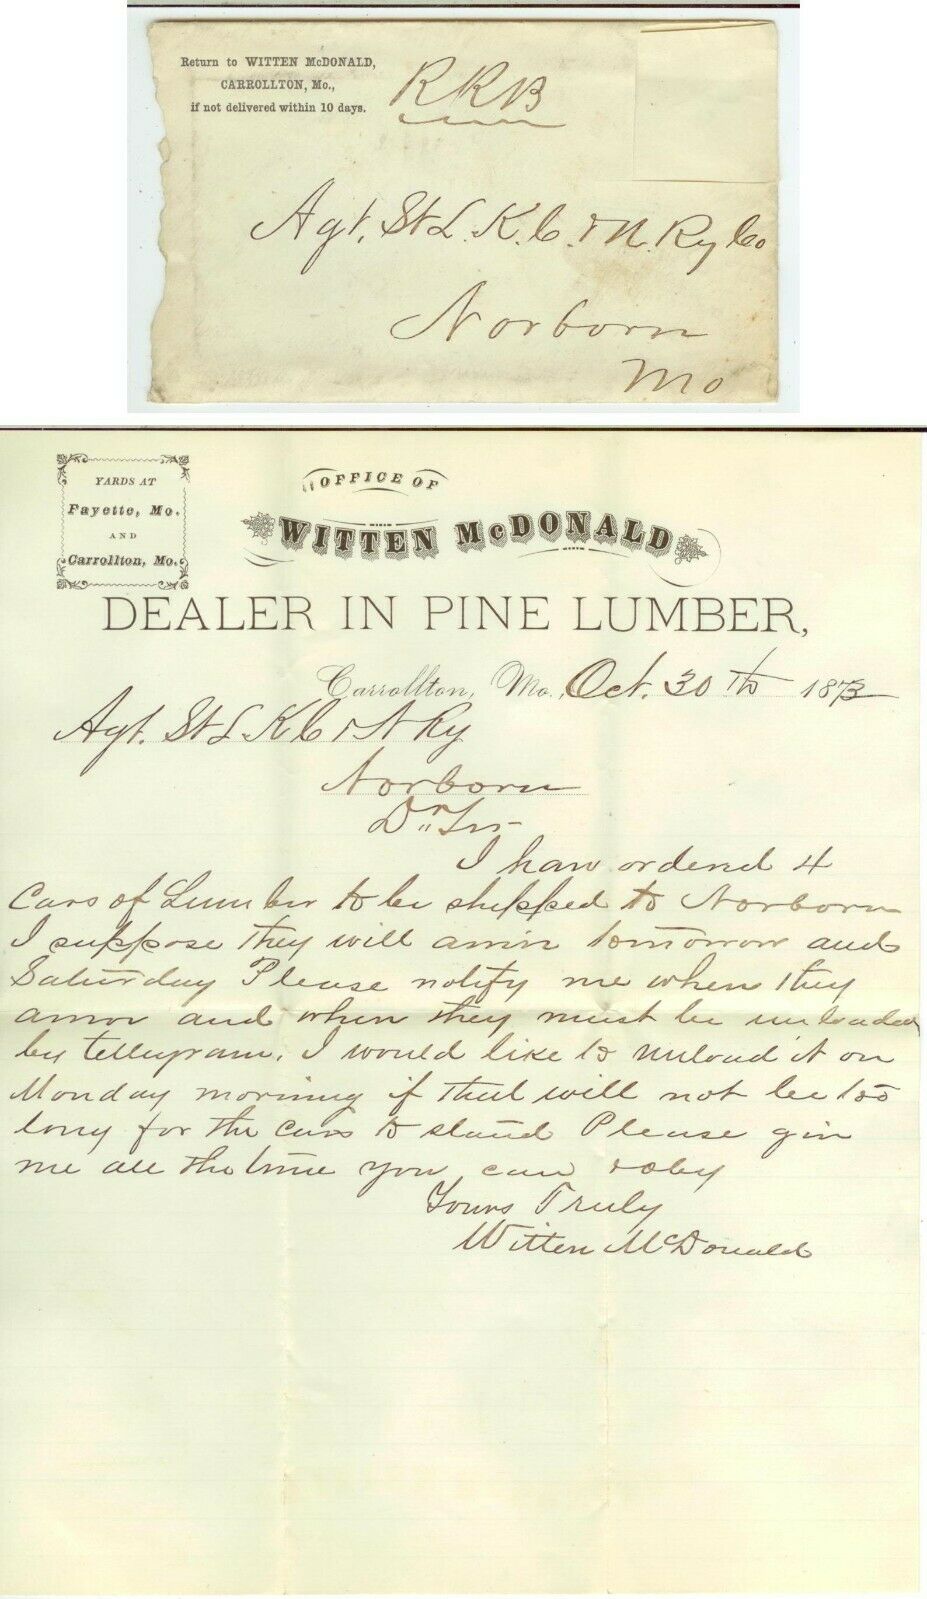 Return to WITTEN McDONALD,
CARROLLTON, Mo.,
if not delivered within 10 days.
RRB
Agt. St L. K. C. & N. Ry Co
Norborn
Mo
YARDS AT
Fayette, Mo.
AND
Carrollton, Mo.
OFFICE OF
WITTEN McDONALD
DEALER IN PINE LUMBER,
Carrollton, Mo., Oct. 30th 1873
Agt. St L K C & N Ry
Norborn
Dr Sir
I have ordered 4
cars of Lumber to be shipped to Norborn
I suppose they will arrive tomorrow and
Saturday Please notify me when they
arrive and when they must be unloaded
by tellegram. I would like to unload it on
Monday morning if that will not be too
long for the cars to stand Please give
me all the time you can & obly
Yours Truly
Witten McDonald